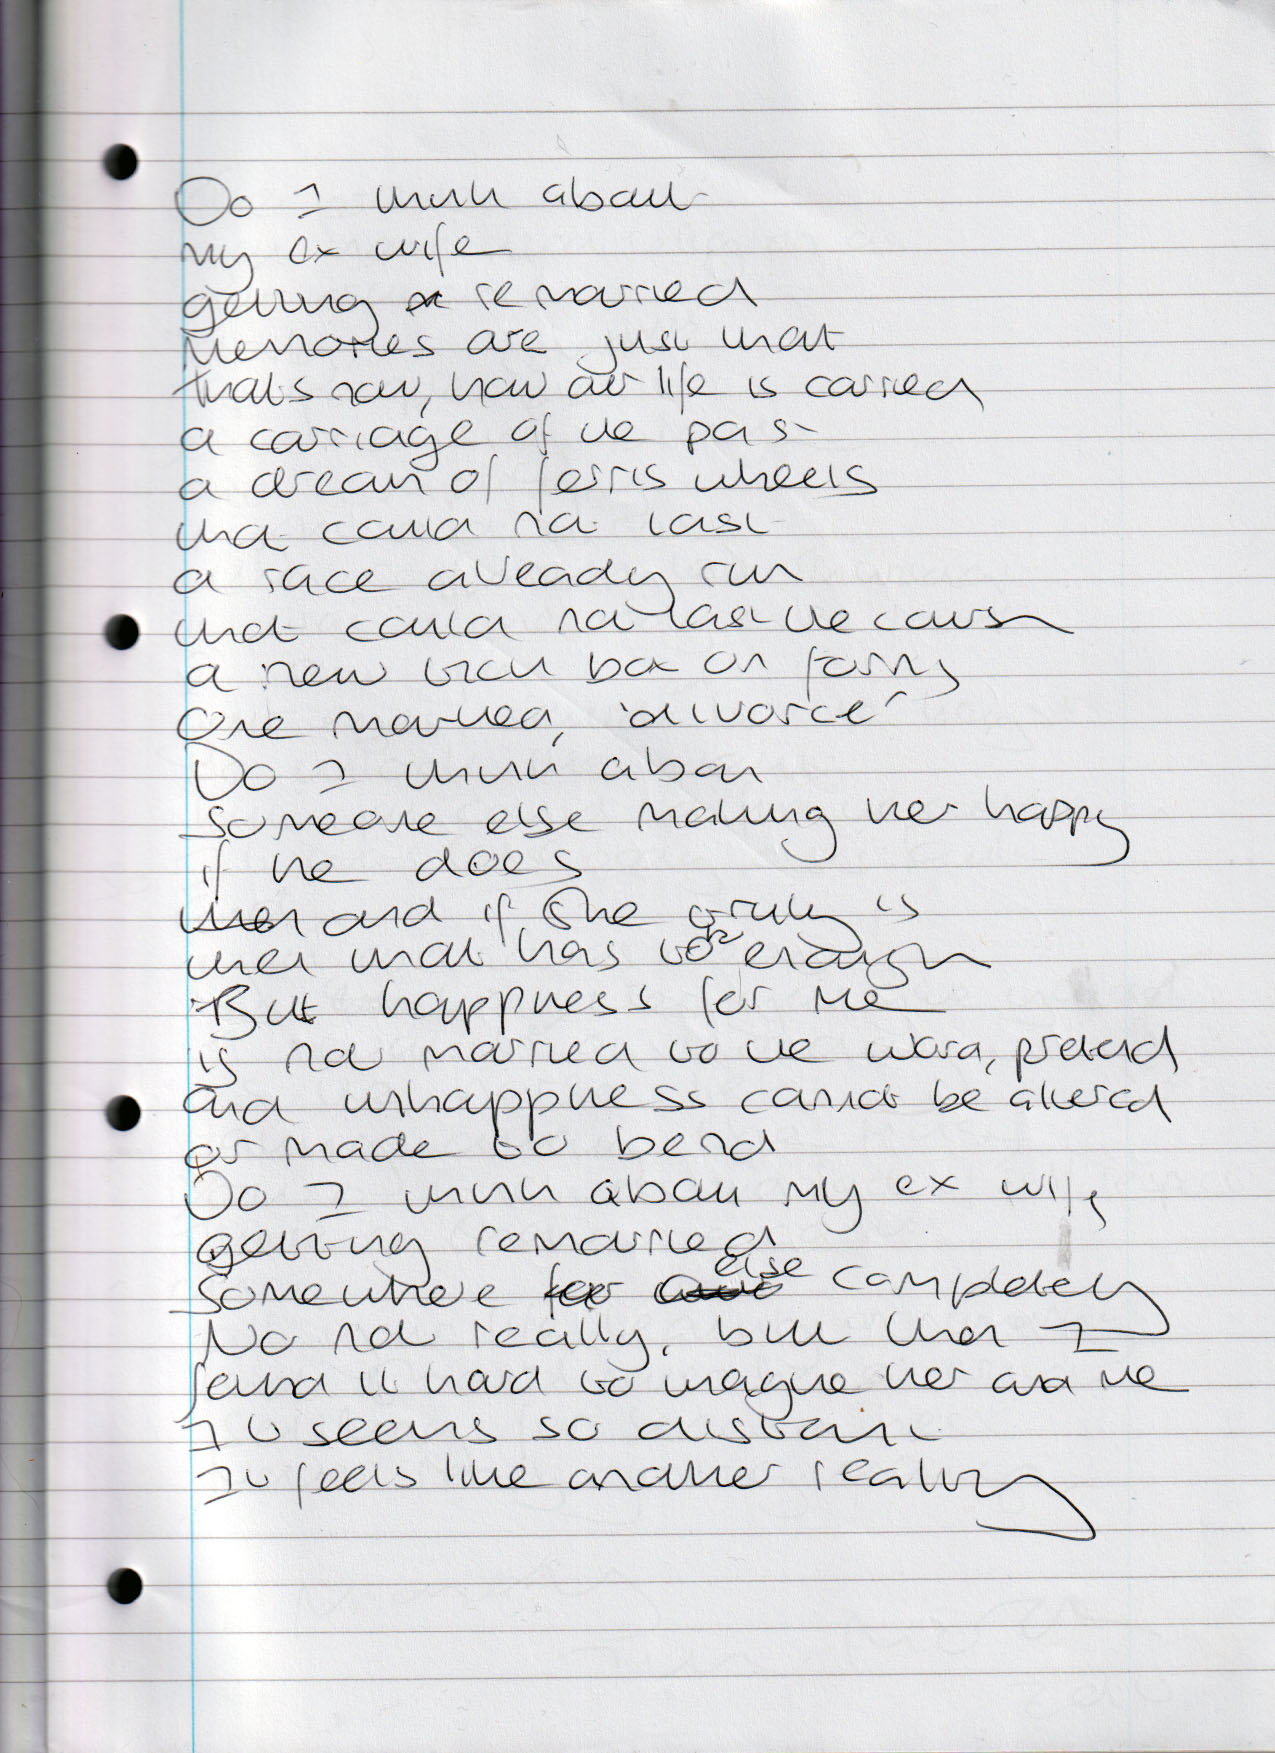 Do I think about
my ex wife
getting remarried
Memories are just that
that's now, how our life is carried
a carriage of the past
a dream of ferris wheels
that could not last
a race already run
that could not last the course
a new tick box on forms
One marked, 'divorce'
Do I think about
Someone else making her happy
if he does
and if She truly is
then that has to be enough
But happiness for me
is not married to the word, pretend
and unhappiness cannot be altered
or made to bend
Do I think about my ex wife
getting remarried
Somewhere else completely
No not really, but then I
found it hard to imagine her and me
It seems so distant
It feels like another reality